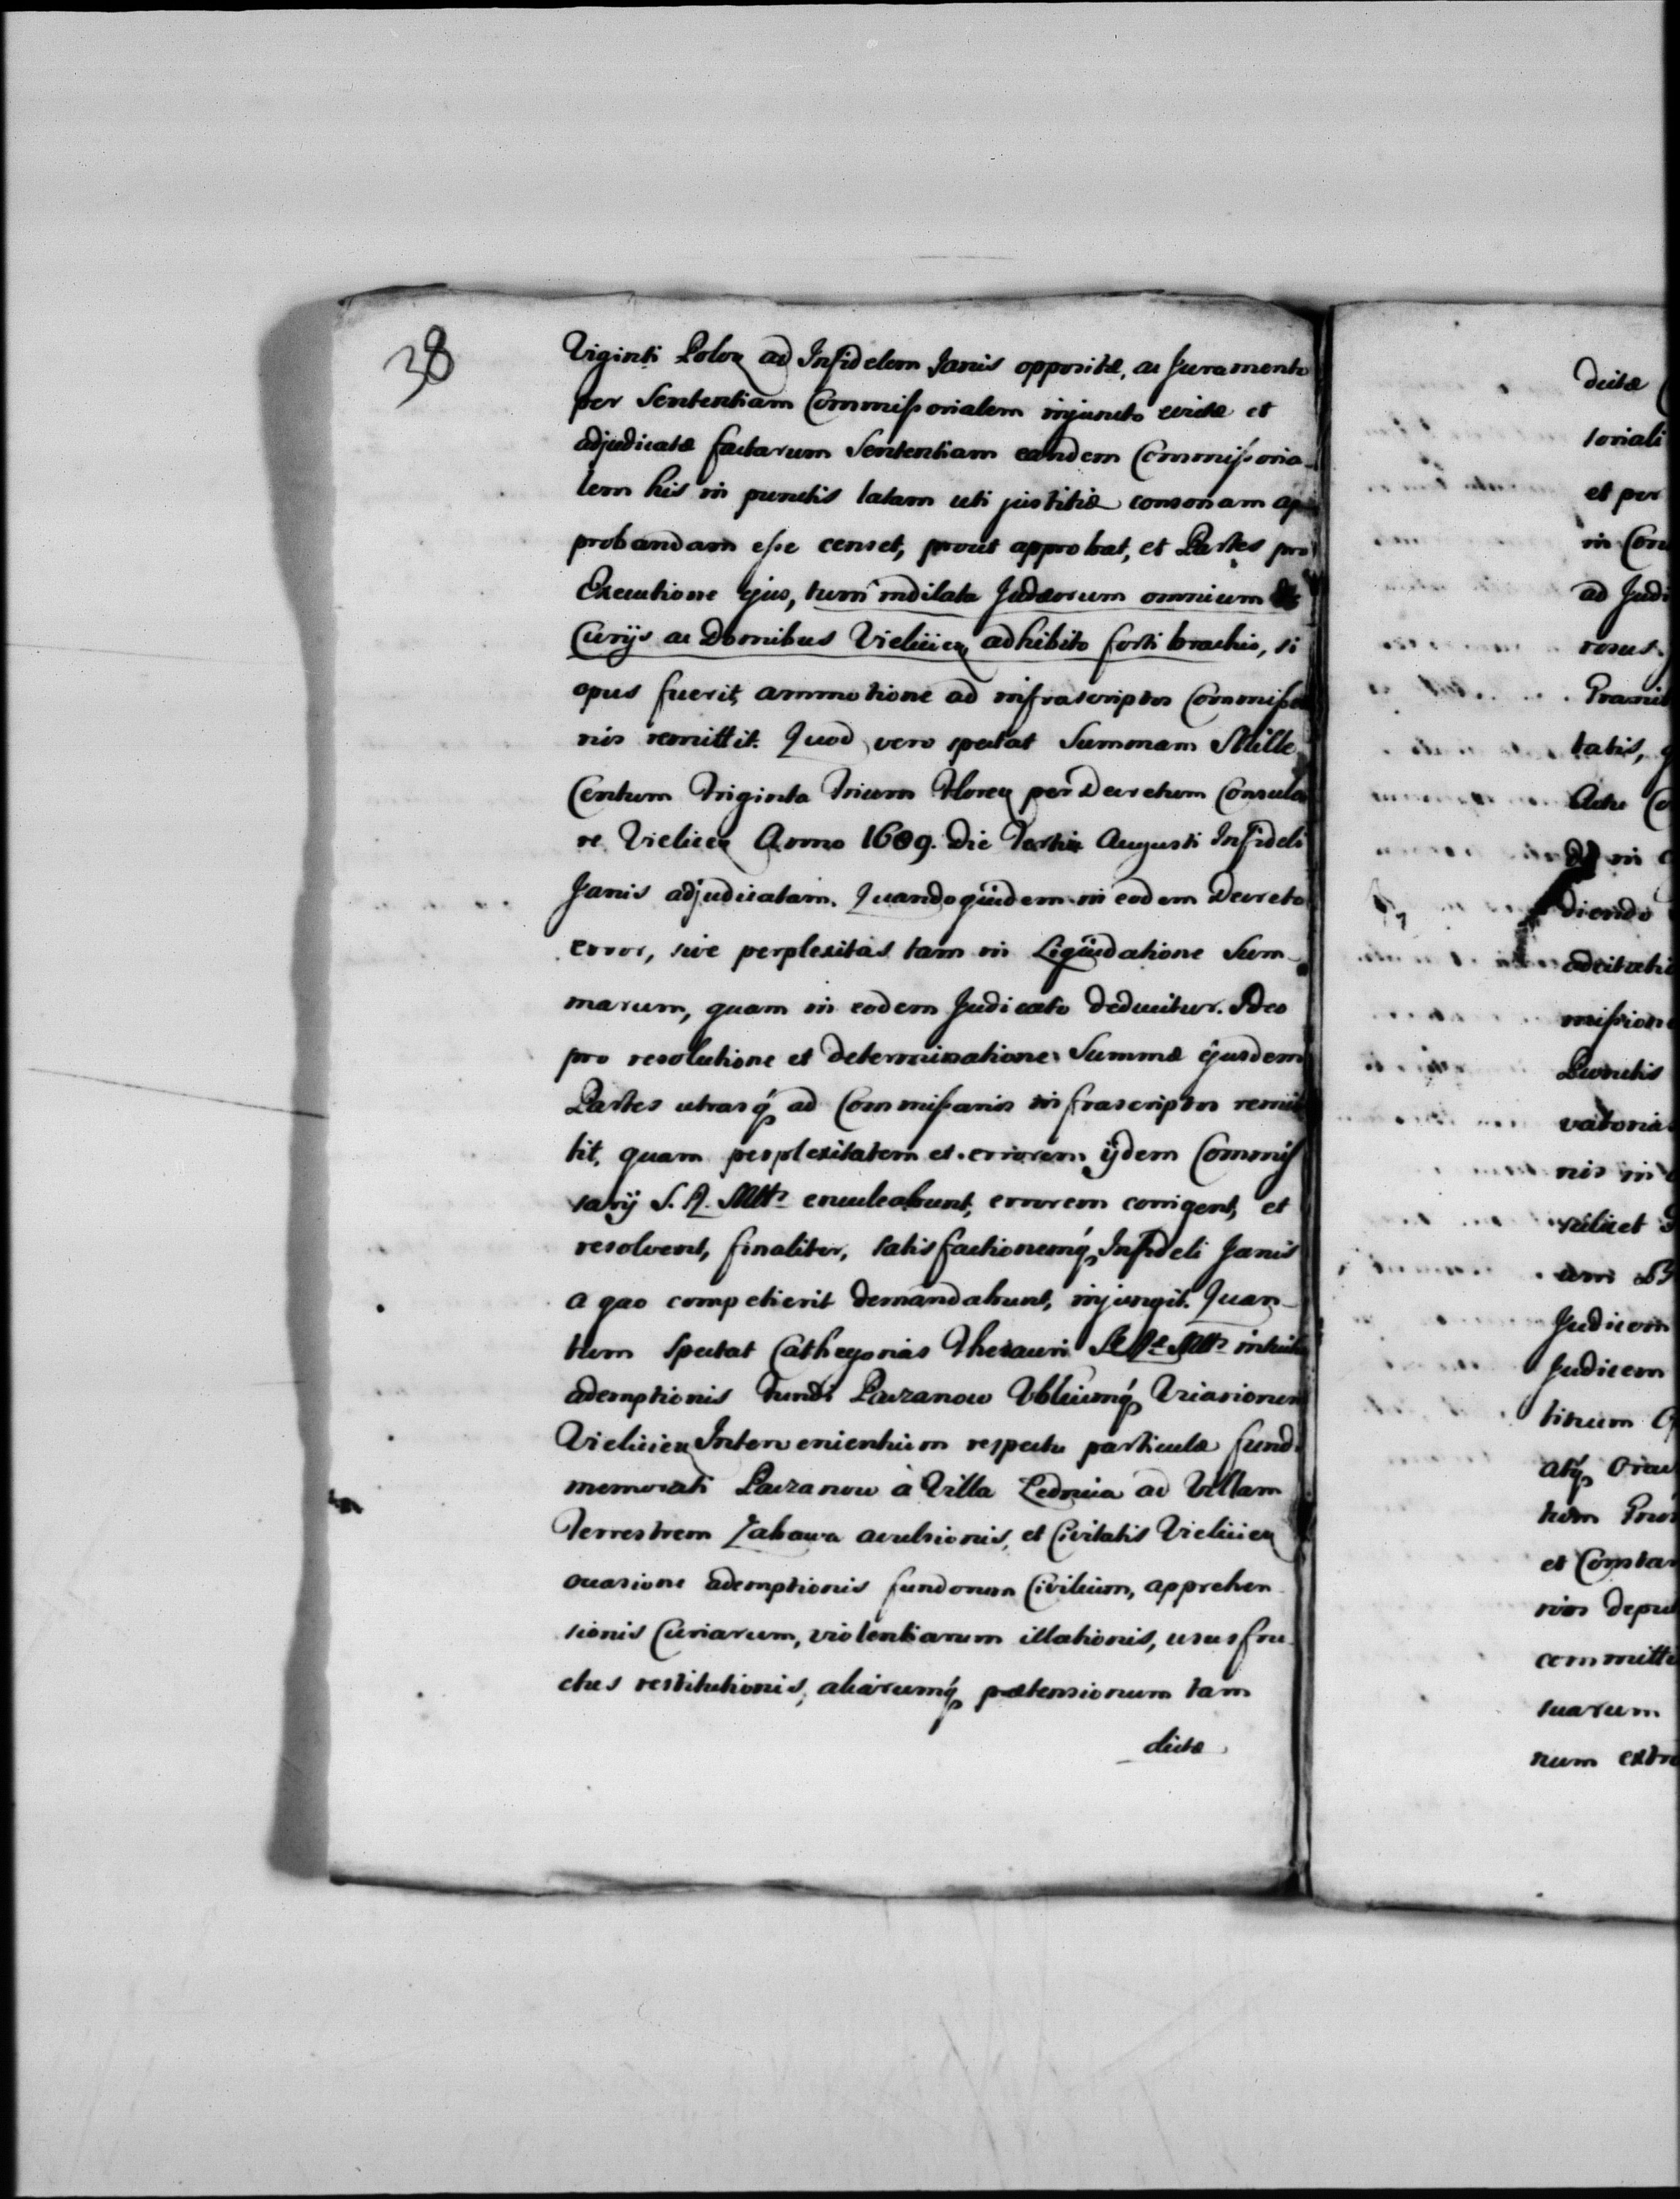 38
Viginti Polon ad Infidelem Janis oppositæ, ac Juramento
per Sententiam Commissorialem injuncto evictæ et
adjudicatæ factarum Sententiam eandem Commissoria-
lem his in punctis latam uti justitiæ consonam ap
probandam esse censet, prout approbat, et Partes pro
Executione ejus, tum indilata Judæorum omnium
Curijs ac Domibus Vielicien adhibito forti brachio, si
opus fuerit, ammotione ad infrascriptos Commissa
rios remittit. Quod vero spectat Summam Mille
Centum Triginta Trium Floren per Decretum Consula
re Vielicien Anno 1689. Die Tertia Augusti Infideli
Janis adjudicatam. Quandoquidem in eodem Decreto
error, sive perplexitas tam in Liquidatione Sum-
marum, quam in eodem Judicato deducitur. Ideo
pro resolutione et determinatione Summæ ejusdem
Partes utrasq́ ad Commissarios infrascriptos remit
tit, quam perplexitatem et errorem ijdem Commis
sarij S. R. Mttis enucleabunt, errorem corrigent, et
resolvent, finaliter, satisfactionemq́ Infideli Janis
a quo competierit demandabunt, injungit. Quan-
tum Spectat Cathegorias Thesauri S. Ræ Mttis intuitu
ademptionis fundi Pawzanow Nobiliumq́ Uriasiorum
Vielicien Intervenientium respectu particulæ fundi
memorati Pawzanow à Villa Lednica ad Villam
Terrestrem Zabawa avulsionis, et Civitatis Vielicien
occasione ademptionis fundorum Civilium, apprehen
sionis Curiarum, violentiarum illationis, usus fru
ctus restitutionis, aliarumq́ prætensionum tam
dictæ
dictæ
toriali
et per
in Con
ad Judi
rosus.
Pramis
tatis,
Actu
in
diendo
mission
Punctis
nis in
scilicet
Judicem
Judicem
atq́
et Constan
rios depu
committi
suarum
num extra